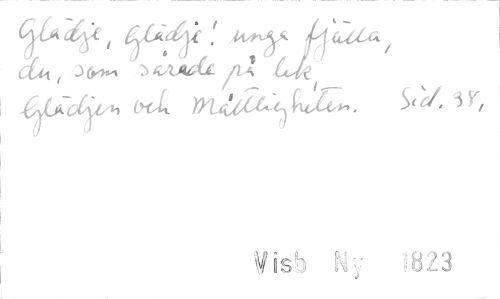 Glädje, Glädje! unga fjälla,
du, som sårade på lek,
Glädjen och Måttligheten. Sid. 38,
Visb Ny 1823